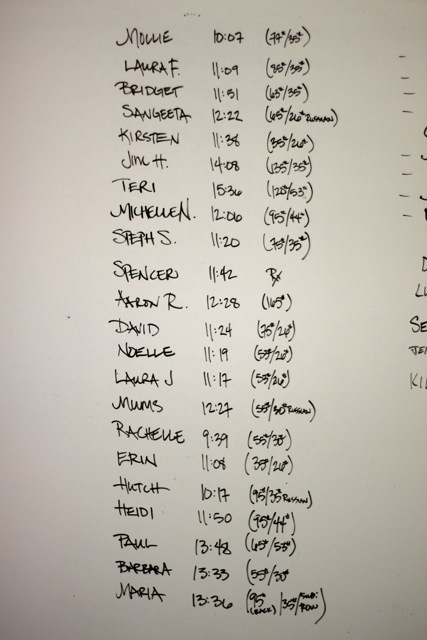 MOLLIE 10:07 (77#/35#)
LAURA F. 11:09 (85#/35#)
BRIDGET 11:51 (65#/35#)
SANGEETA 12:22 (65#/26# RUSSIAN)
KIRSTEN 11:38 (35#/26#)
JIM H. 14:08 (135#/35#)
TERI 15:36 (120#/53#)
MICHELLE N. 12:06 (95#/44#)
STEPH S. 11:20 (75#/35#)
SPENCER 11:42 Rx
AARON R. 12:28 (165#)
DAVID 11:24 (75#/26#)
NOELLE 11:19 (55#/26#)
LAURA J 11:17 (55#/26#)
MUMS 12:27 (55#/30# RUSSIAN)
RACHELLE 9:39 (55#/30#)
ERIN 11:08 (35#/26#)
HUTCH 10:17 (95#/35# RUSSIAN)
HEIDI 11:50 (95#/44#)
PAUL 13:48 (65#/53#)
BARBARA 13:33 (55#/30#
MARIA 13:36 (95# (BACK) /35#/ ROW)